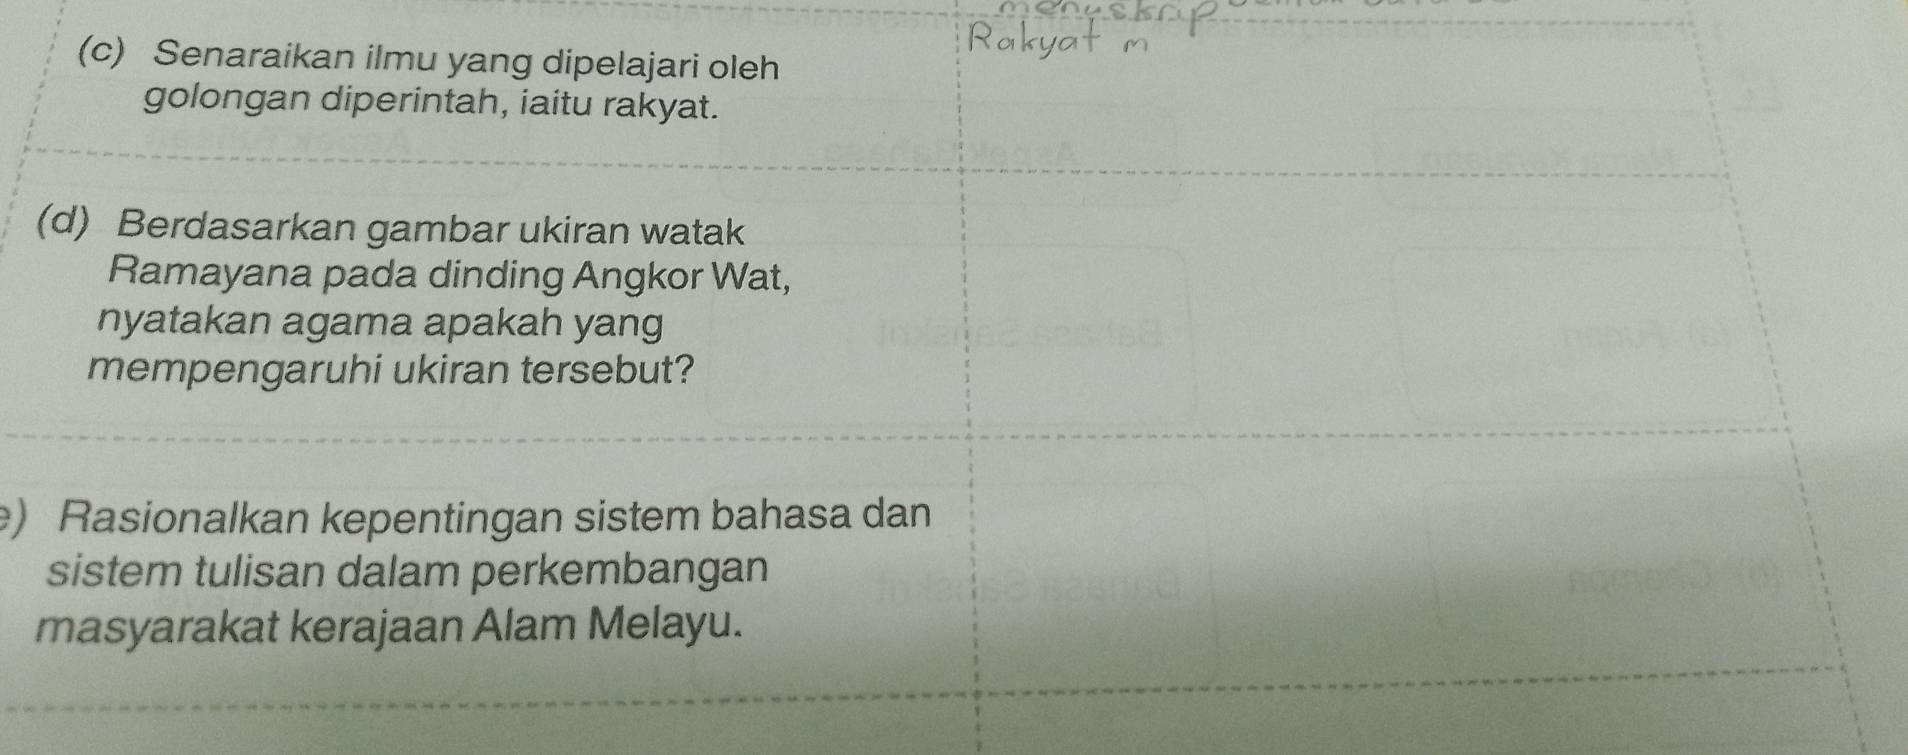 menuskrip
Rakyat m
(c) Senaraikan ilmu yang dipelajari oleh
golongan diperintah, iaitu rakyat.
(d) Berdasarkan gambar ukiran watak
Ramayana pada dinding Angkor Wat,
nyatakan agama apakah yang
mempengaruhi ukiran tersebut?
e) Rasionalkan kepentingan sistem bahasa dan
sistem tulisan dalam perkembangan
masyarakat kerajaan Alam Melayu.